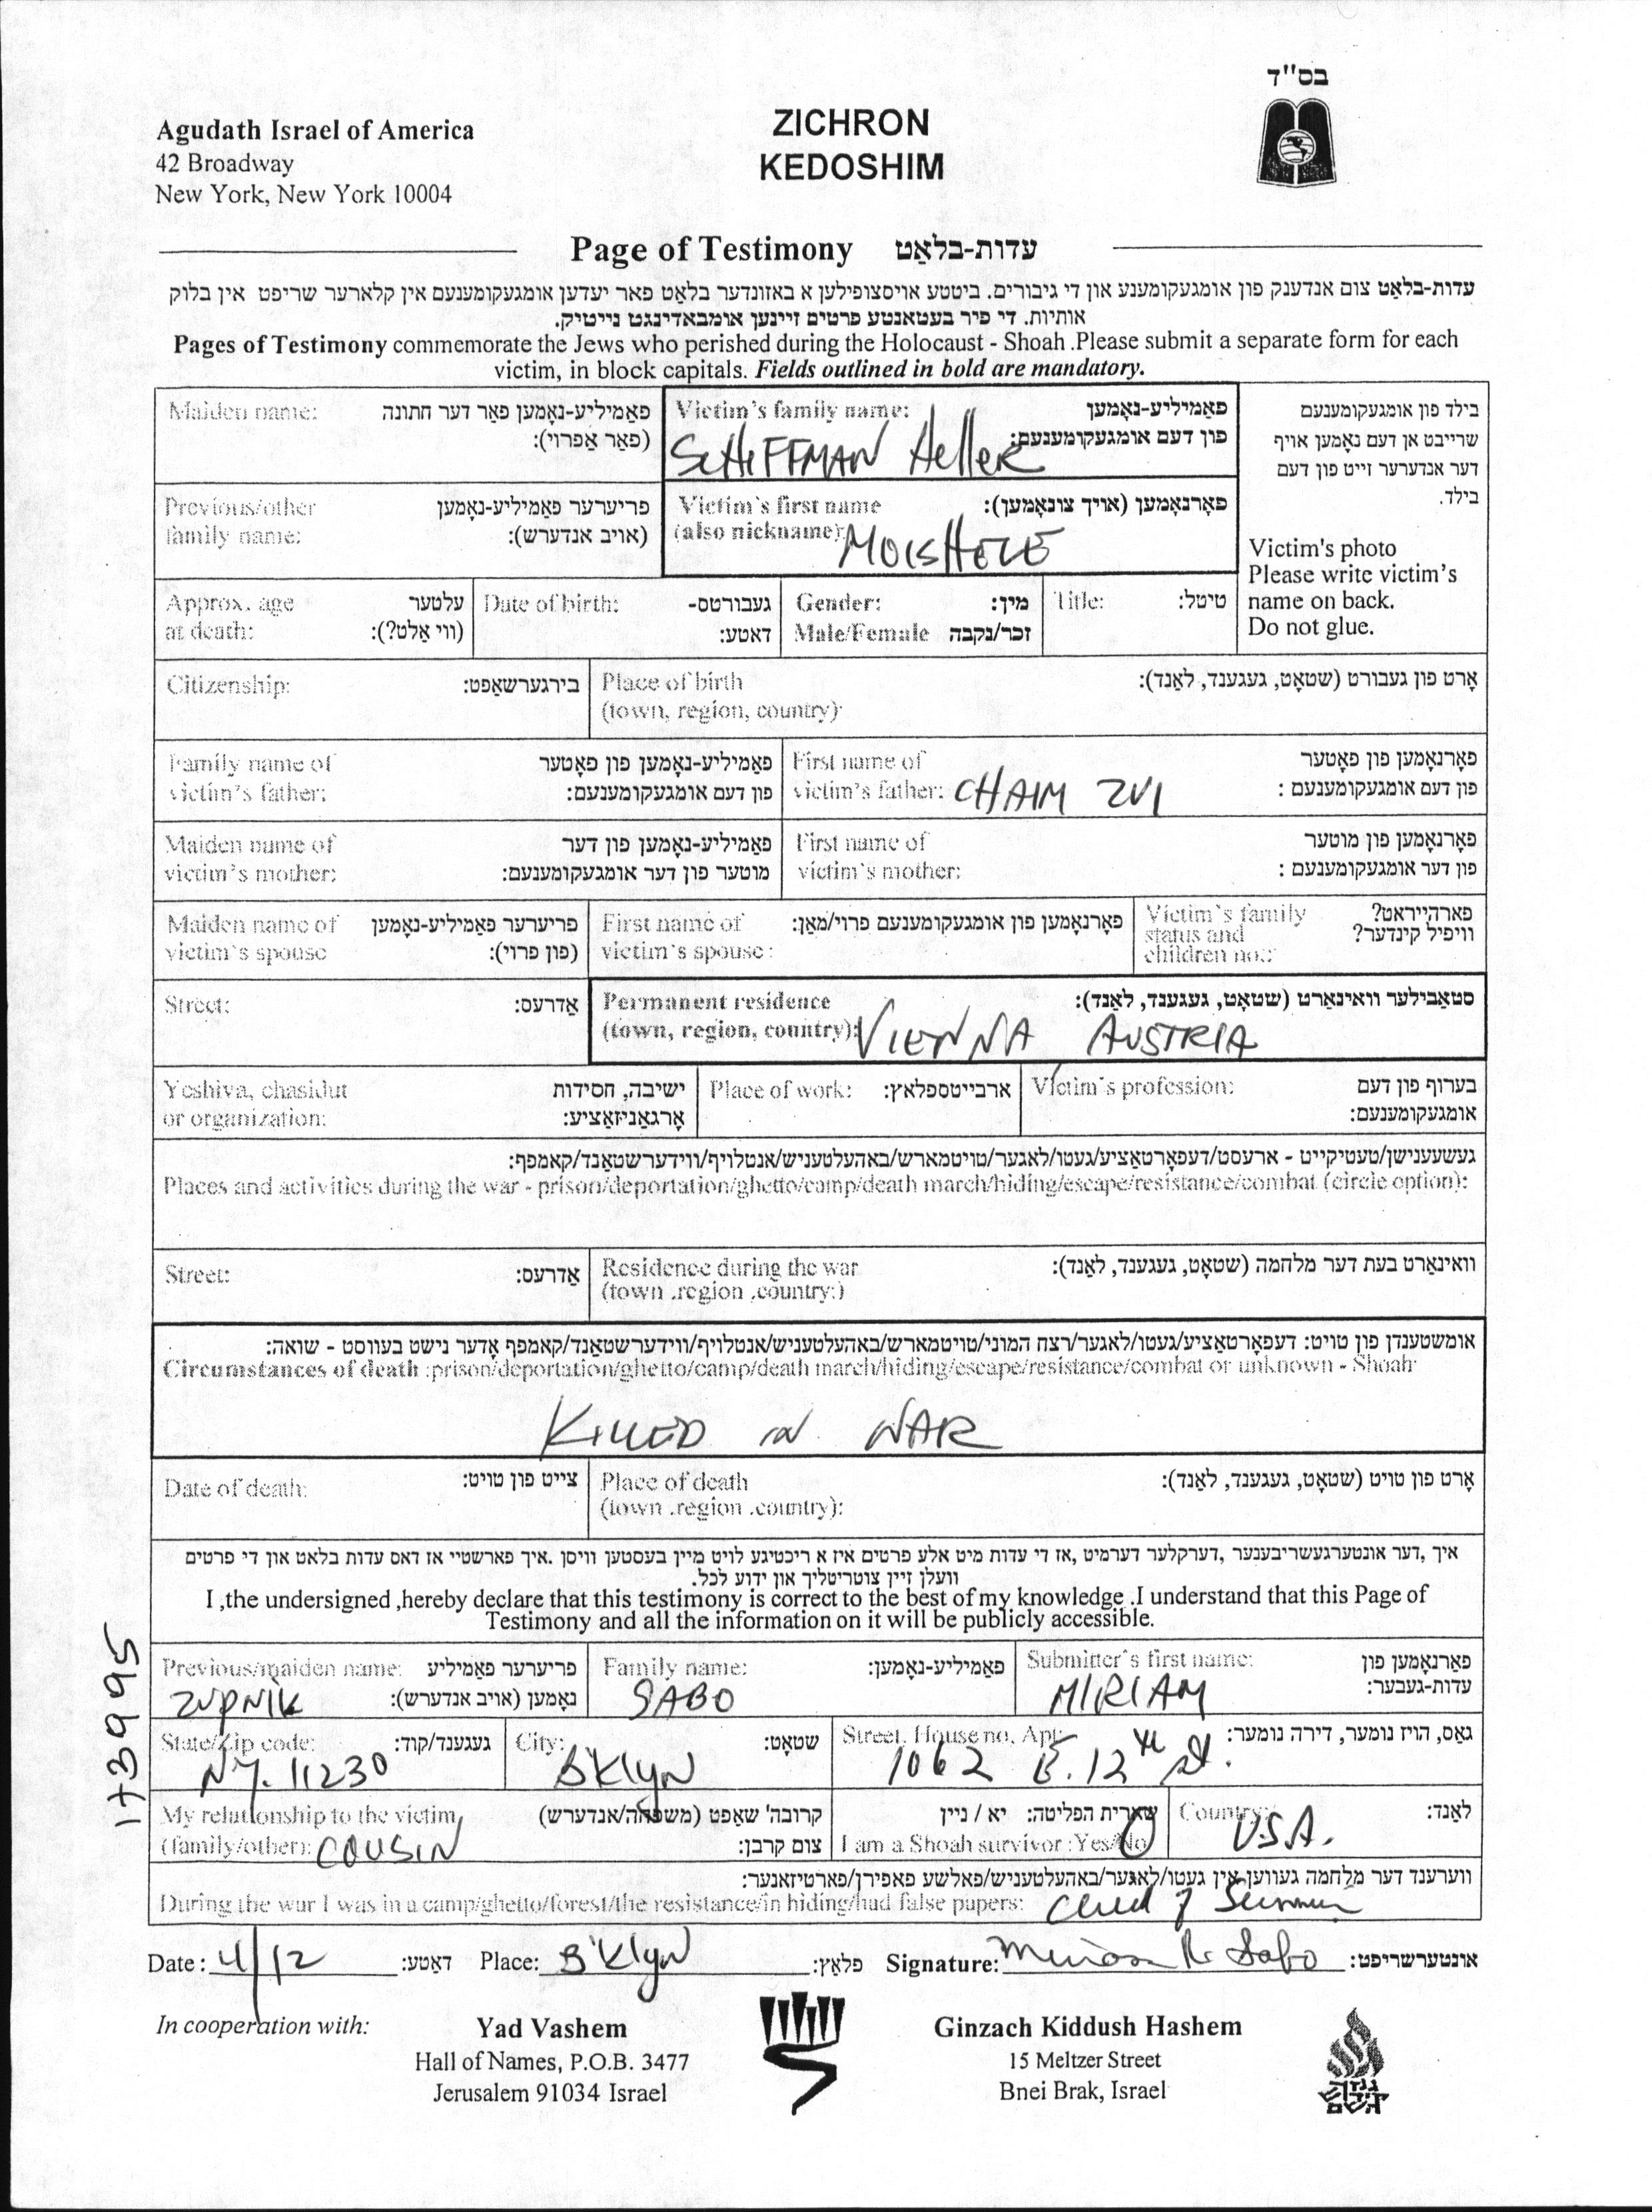 בס"ד
Agudath Israel of America
42 Broadway
New York, New York 10004
ZICHRON
KEDOSHIM
Page of Testimony עדות-בלאַט
עדות-בלאַט צום אנדענק פון אומגעקומענע און די גיבורים. ביטטע אויסצופילען א באזונדער בלאַט פאר יעדען אומגעקומענעם אין קלארער שריפט אין בלוק
אותיות. די פיר בעטאנטע פרטים זיינען אומבאדינגט נייטיק.
Pages of Testimony commemorate the Jews who perished during the Holocaust - Shoah .Please submit a separate form for each
victim, in block capitals. Fields outlined in bold are mandatory.
Maiden name: פאַמיליע-נאָמען פאַר דער חתונה
(פאַר אַפרוי):
Victim's family name: פאַמיליע-נאָמען
פון דעם אומגעקומענעם:
SCHIFFMAN Heller
בילד פון אומגעקומענעם
שרייבט אן דעם נאָמען אויף
דער אנדערער זייט פון דעם
בילד.
Victim's photo
Please write victim's
name on back.
Do not glue.
Previous/other פריערער פאַמיליע-נאָמען
family name: (אויב אנדערש):
Victim's first name פאָרנאָמען (אויך צונאָמען):
(also nickname): MOISHELE
Approx. age עלטער
at death: (ווי אַלט?):
Date of birth: געבורטס-
דאטע:
Gender: מין:
Male/Female זכר/נקבה
Title: טיטל:
Citizenship: בירגערשאַפט:
Place of birth אָרט פון געבורט (שטאָט, געגענד, לאַנד):
(town, region, country)
Family name of פאַמיליע-נאָמען פון פאָטער
victim's father: פון דעם אומגעקומענעם:
First name of פאָרנאָמען פון פאָטער
victim's father: CHAIM ZVI פון דעם אומגעקומענעם :
Maiden name of פאַמיליע-נאָמען פון דער
victim's mother: מוטער פון דער אומגעקומענעם:
First name of פאָרנאָמען פון מוטער
victim's mother: פון דער אומגעקומענעם :
Maiden name of פריערער פאַמיליע-נאָמען
victim's spouse (פון פרוי):
First name of פאָרנאָמען פון אומגעקומענעם פרוי/מאַן:
victim's spouse :
Victim's family פארהייראט?
status and וויפיל קינדער?
children no.:
Street: אַדרעס:
Permanent residence סטאַבילער וואוינאַרט (שטאָט, געגענד, לאַנד):
(town, region, country): VIENNA AUSTRIA
Yeshiva, chasidut ישיבה, חסידות
or organization: אָרגאַניזאַציע:
Place of work: ארבייטספלאץ:
Victim's profession: בערוף פון דעם
אומגעקומענעם:
געשעענישן/טעטיקייט - ארעסט/דעפאָרטאַציע/געטו/לאגער/טויטמארש/באהעלטעניש/אנטלויף/ווידערשטאַנד/קאמפף:
Places and activities during the war - prison/deportation/ghetto/camp/death march/hiding/escape/resistance/combat (circle option):
Street: אַדרעס:
Residence during the war וואוינאַרט בעת דער מלחמה (שטאָט, געגענד, לאַנד):
(town .region .country:)
אומשטענדן פון טויט: דעפאָרטאַציע/געטו/לאגער/רצח המוני/טויטמארש/באהעלטעניש/אנטלויף/ווידערשטאַנד/קאמפף אָדער נישט בעוווסט - שואה:
Circumstances of death :prison/deportation/ghetto/camp/death march/hiding/escape/resistance/combat or unknown - Shoah
KILLED IN WAR
Date of death: צייט פון טויט:
Place of death אָרט פון טויט (שטאָט, געגענד, לאַנד):
(town .region .country):
איך ,דער אונטערגעשריבענער ,דערקלער דערמיט ,אז די עדות מיט אלע פרטים איז א ריכטיגע לויט מיין בעסטען וויסן .איך פארשטיי אז דאס עדות בלאט און די פרטים
וועלן זיין צוטריטליך און ידוע לכל.
I ,the undersigned ,hereby declare that this testimony is correct to the best of my knowledge .I understand that this Page of
Testimony and all the information on it will be publicly accessible.
Previous/maiden name: פריערער פאַמיליע
ZUPNIK נאָמען (אויב אנדערש):
Family name: פאַמיליע-נאָמען:
SABO
Submitter's first name: פאַרנאָמען פון
עדות-געבער:
MIRIAM
State/Zip code: געגענד/קוד:
NY. 11230
City: שטאָט:
B'Klyn
Street, House no, Apt: גאַס, הויז נומער, דירה נומער:
1062 E. 12th St.
My relationship to the victim קרובה' שאַפט (משפחה/אנדערש)
(family/other): COUSIN צום קרבן:
שארית הפליטה: יא / ניין
I am a Shoah survivor :Yes/No
Country: לאַנד:
USA.
ווערענד דער מלחמה געווען אין געטו/לאגער/באהעלטעניש/פאלשע פאפירן/פארטיזאנער:
During the war I was in a camp/ghetto/forest/the resistance/in hiding/had false papers:
Date : 4/12 דאַטע: Place: B'Klyn פלאַץ: Signature: Miriam R Sabo אונטערשריפט:
173995
In cooperation with:
Yad Vashem
Hall of Names, P.O.B. 3477
Jerusalem 91034 Israel
Ginzach Kiddush Hashem
15 Meltzer Street
Bnei Brak, Israel
גנזך
קידוש
השם